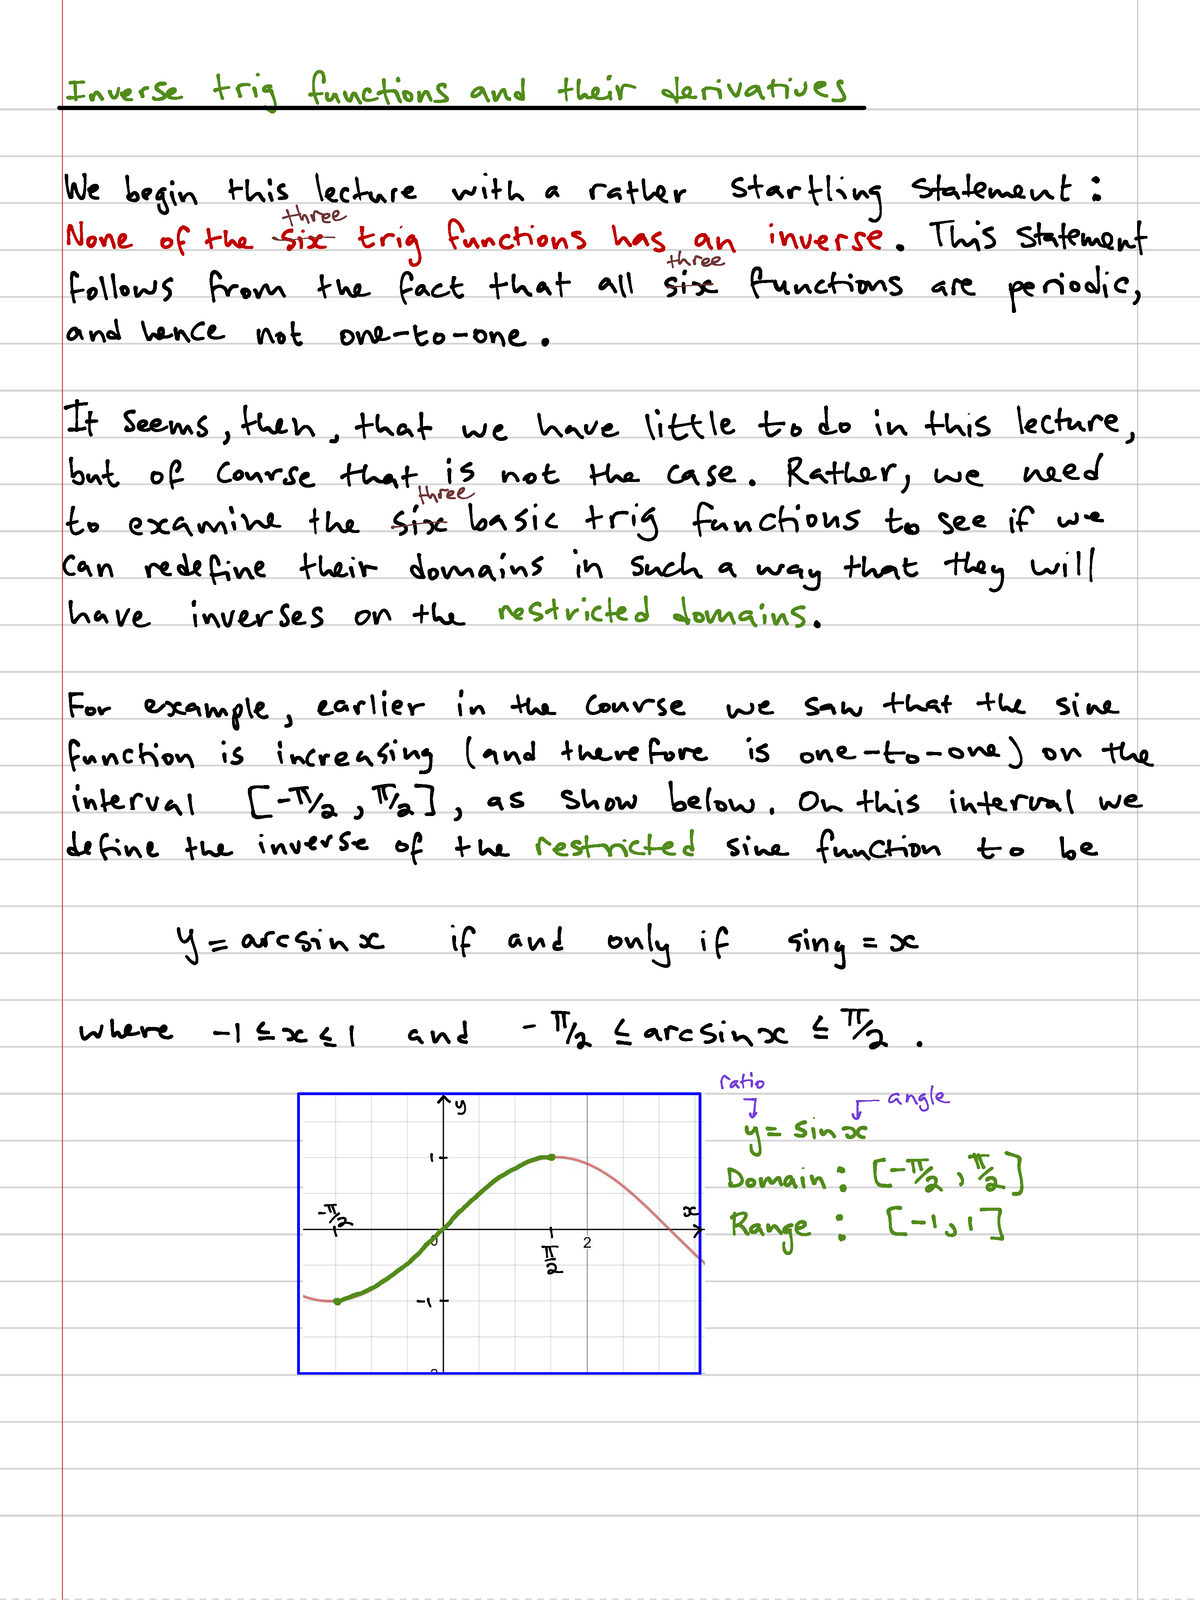 Inverse trig functions and their derivatives
We begin this lecture with a rather startling statement:
three
None of the six trig functions has an inverse. This statement
three
follows from the fact that all six functions are periodic,
and hence not one-to-one.
It seems, then, that we have little to do in this lecture,
but of course that is not the case. Rather, we need
three
to examine the six basic trig functions to see if we
can redefine their domains in such a way that they will
have inverses on the restricted domains.
For example, earlier in the course we saw that the sine
function is increasing (and therefore is one-to-one) on the
interval [-π/2, π/2], as show below. On this interval we
define the inverse of the restricted sine function to be
y = arcsin x if and only if sin y = x
where -1 ≤ x ≤ 1 and -π/2 ≤ arcsin x ≤ π/2.
ratio
angle
y = sin x
Domain: [-π/2, π/2]
Range: [-1, 1]
y
1
-π/2
x
0
π/2
2
-1